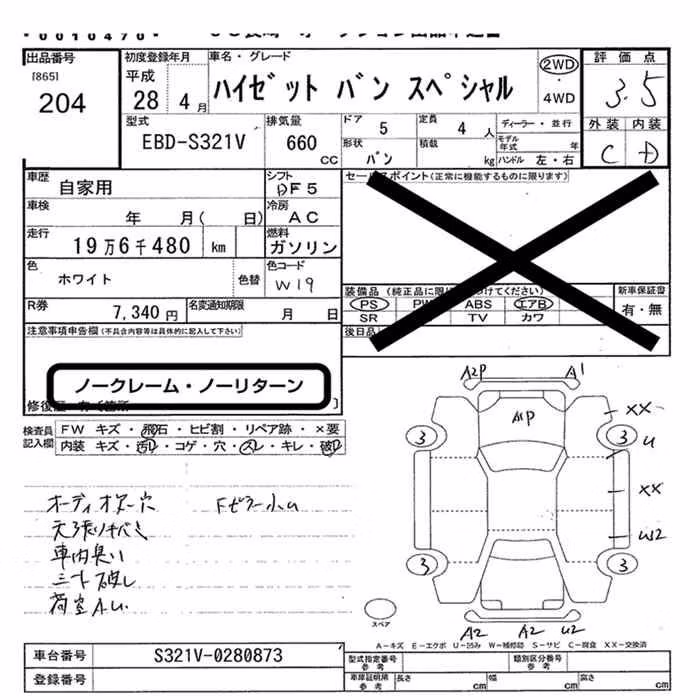 出品番号
[865]
204
初度登録年月
平成
28 4月
車名・グレード
ハイゼット バン スペシャル
2WD
4WD
評価点
3.5
外装 内装
C D
型式
EBD-S321V
排気量
660
cc
ドア
5
定員
4 人
ディーラー・並行
形状
バン
積載
kg
モデル年式
年
ハンドル 左・右
車歴
自家用
シフト
DF5
車検
年 月( 日)
冷房
AC
走行
19万6千480 km
燃料
ガソリン
色
ホワイト
色替
色コード
W19
R券
7,340円
名変通知期限
月 日
セールスポイント(正常に機能するものに限ります)
装備品
PS PW ABS エアB
SR TV カワ
新車保証書
有・無
後日品
注意事項申告欄(不具合内容等は具体的に記入して下さい)
ノークレーム・ノーリターン
検査員記入欄
FW キズ・飛石・ヒビ割・リペア跡・×要
内装 キズ・汚レ・コゲ・穴・スレ・キレ・破レ
オーディオヌケ穴 Fピラー小U
天張りキバミ
車内臭い
シート破レ
荷室A.U.
A2P A1
A1P
XX
3 3
U
XX
W2
3 3
A2 A2 U2
スペア
A－キズ E－エクボ U－凹み W－補修跡 S－サビ C－腐食 XX－交換済
車台番号
S321V-0280873
登録番号
型式指定番号
参考
類別区分番号
参考
車庫証明用
参考
長さ cm
幅 cm
高さ cm